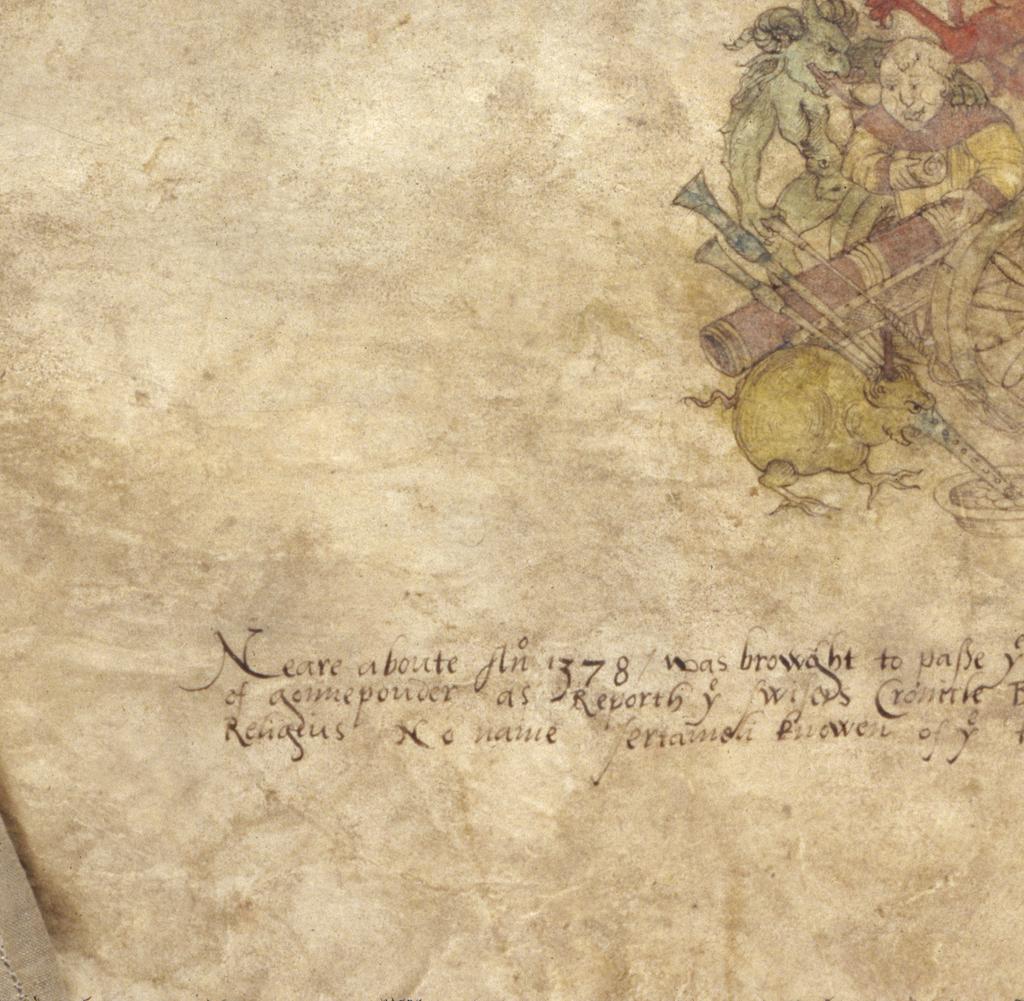 Neare aboute Año 1378 / was browght to paße yͤ
of gonnepouder as Reporth yͤ swisers Cronicle
Religius No name sertaineli knowen of yͤ